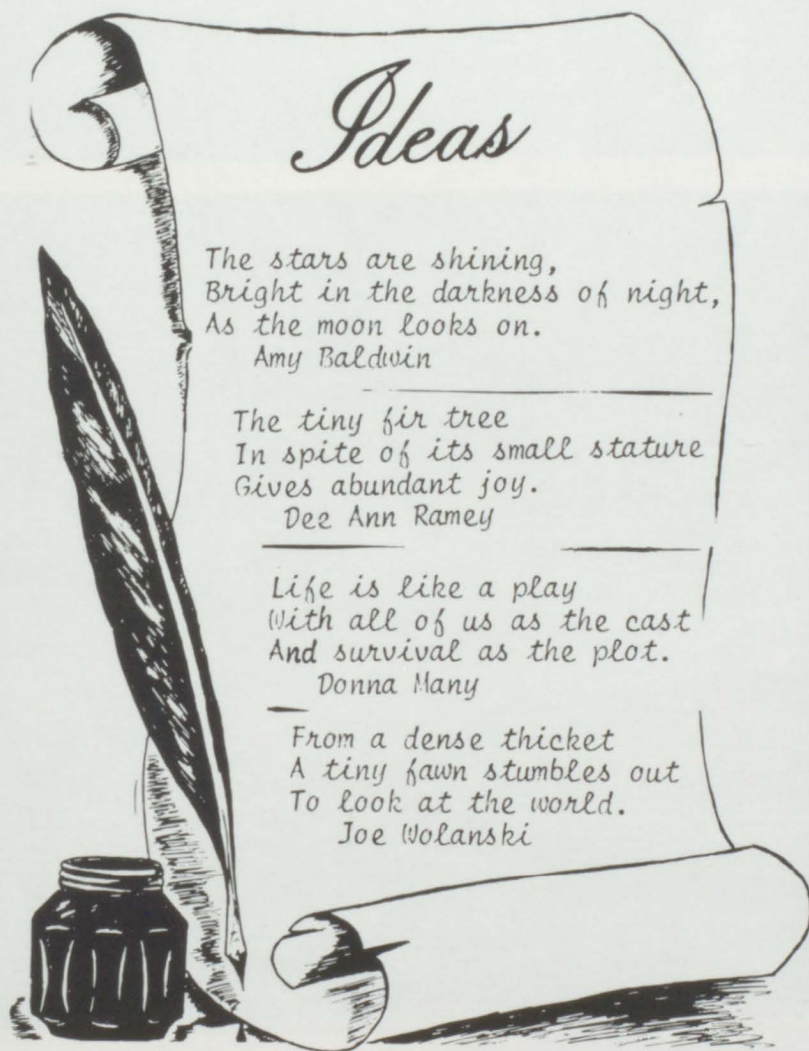 Ideas
The stars are shining,
Bright in the darkness of night,
As the moon looks on.
Amy Baldwin
The tiny fir tree
In spite of its small stature
Gives abundant joy.
Dee Ann Ramey
Life is like a play
With all of us as the cast
And survival as the plot.
Donna Many
From a dense thicket
A tiny fawn stumbles out
To look at the world.
Joe Wolanski